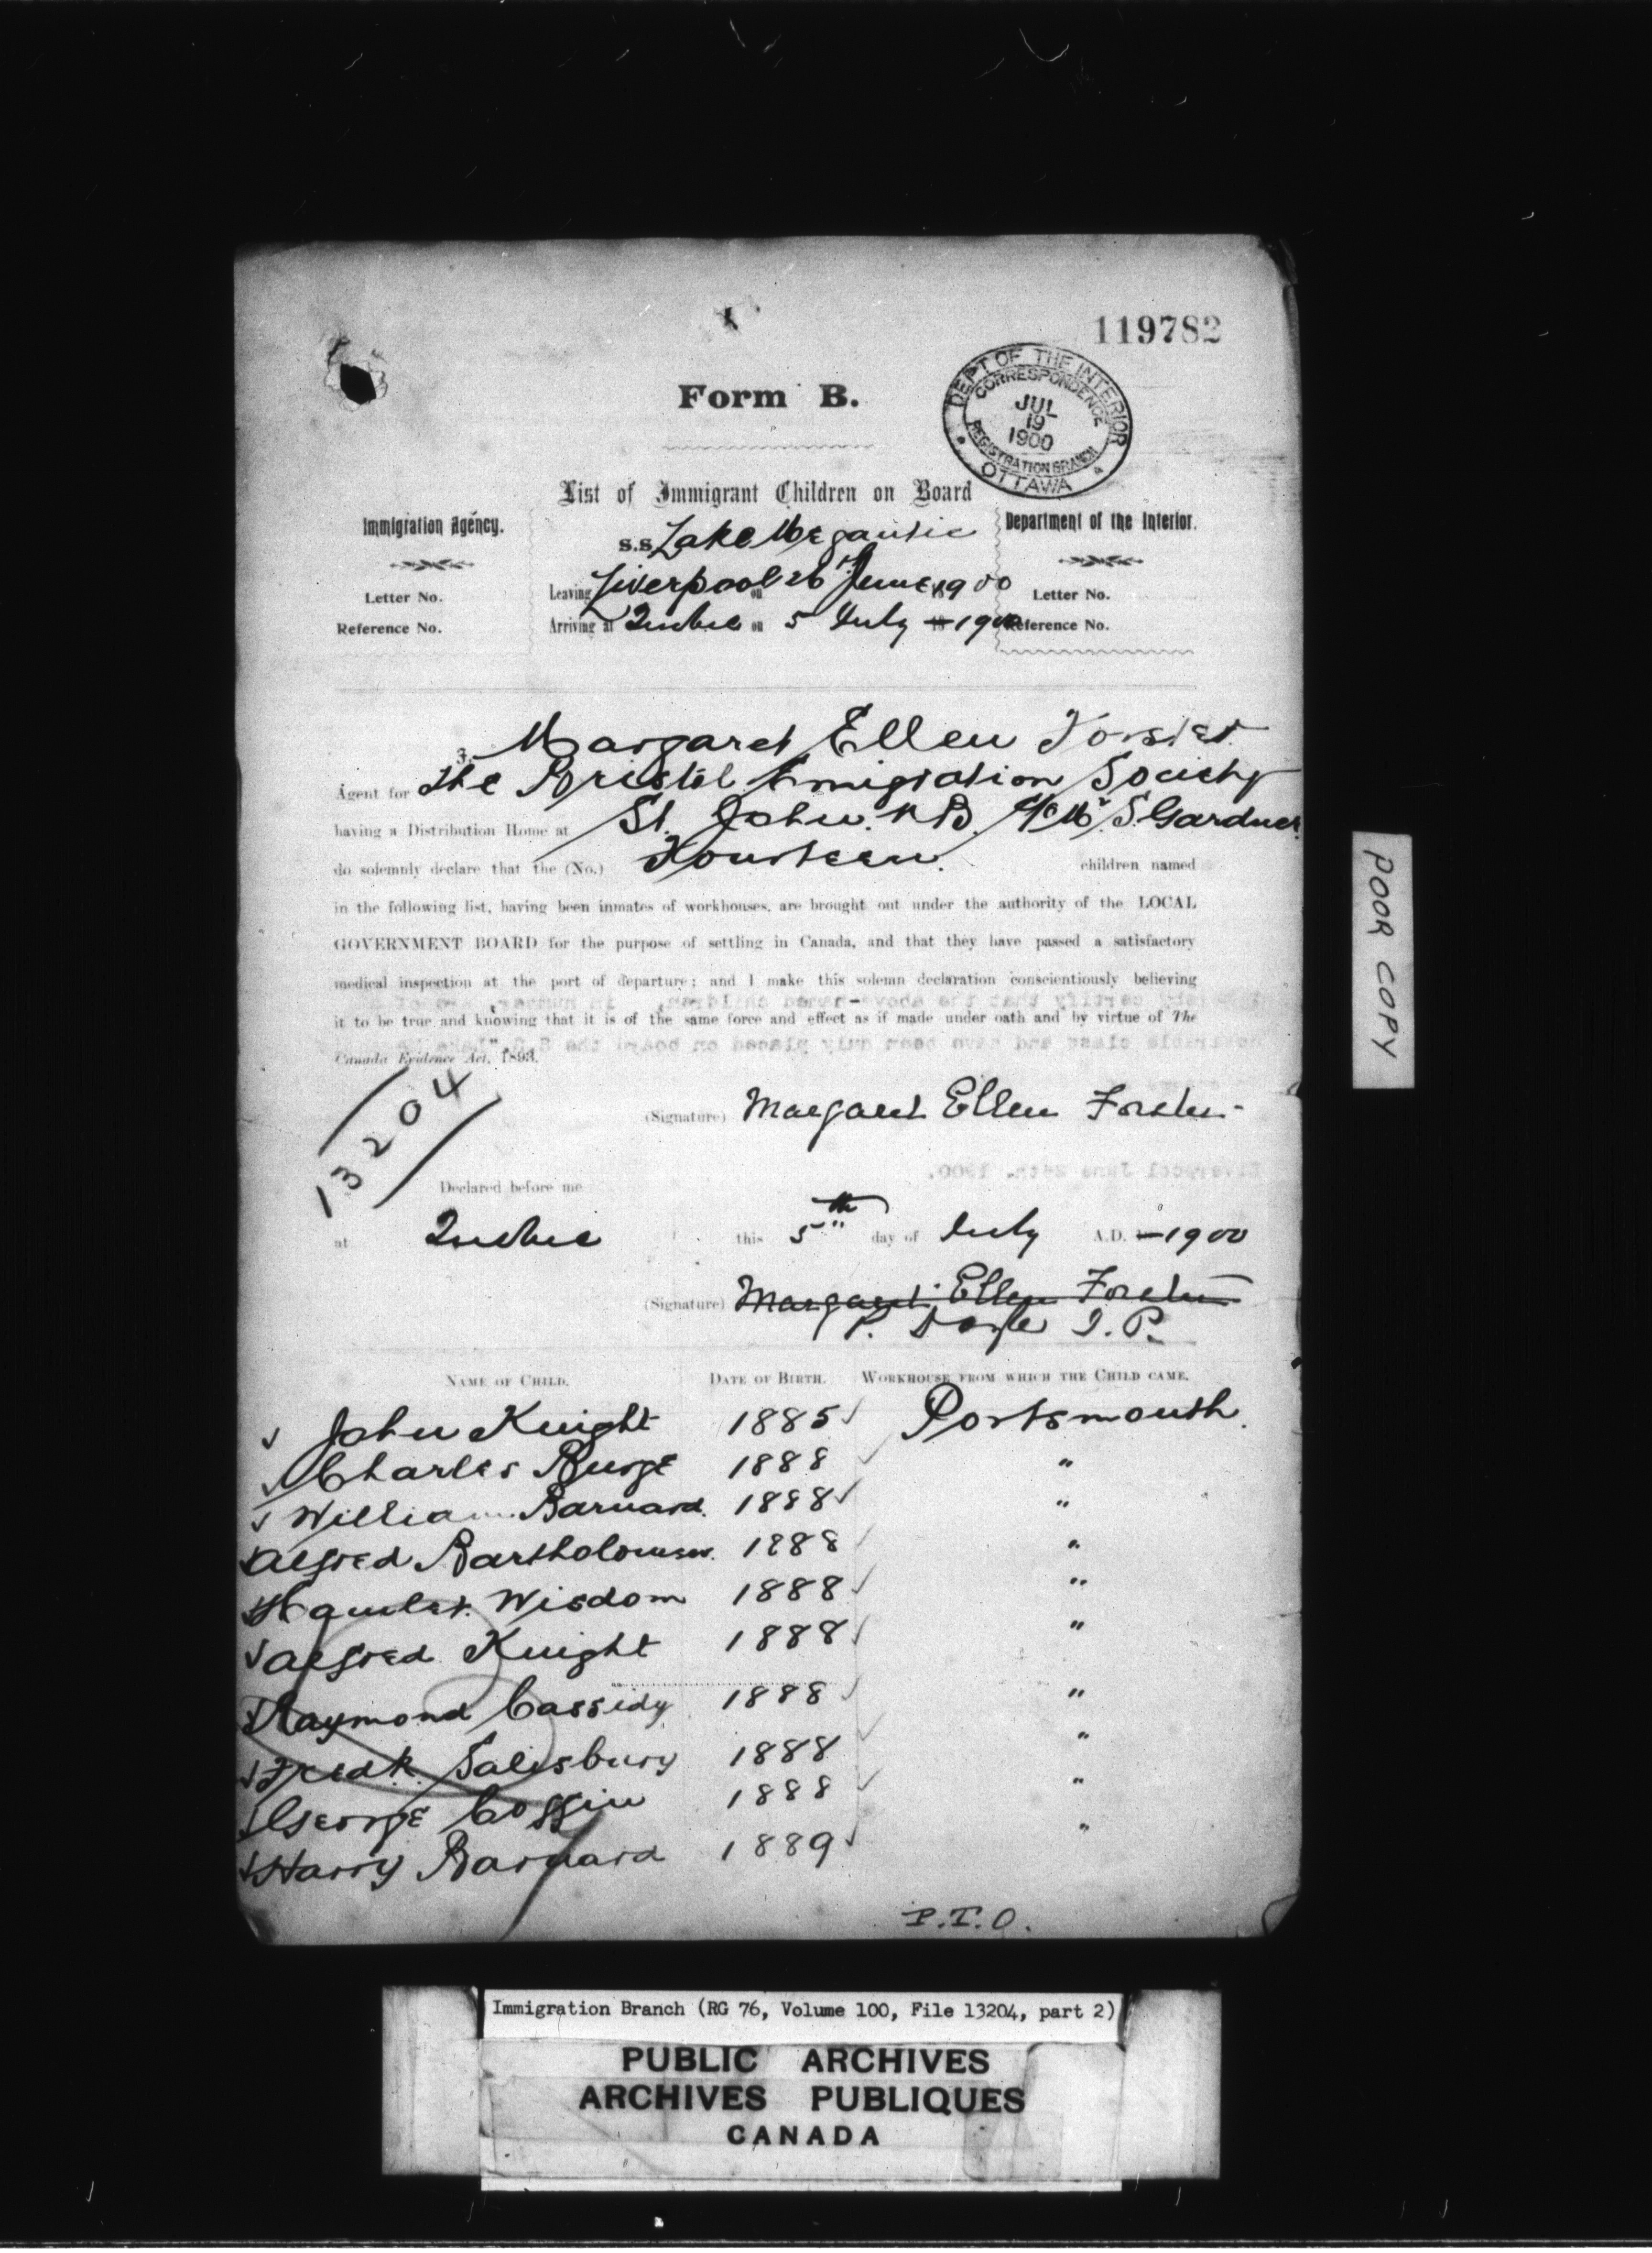 119782
DEPT OF THE INTERIOR
CORRESPONDENCE
JUL
19
1900
REGISTRATION BRANCH
OTTAWA
Form B.
List of Immigrant Children on Board
Immigration Agency.
Department of the Interior.
S.S. Lake Megantic
Leaving Liverpool on 26th June 1900
Letter No.
Letter No.
Arriving at Quebec on 5 July 1900
Reference No.
Reference No.
Margaret Ellen Forster
Agent for The Bristol Emigration Society
having a Distribution Home at St. John. N.B. c/o Mr. S. Gardner
do solemnly declare that the (No.) Fourteen. children named
in the following list, having been inmates of workhouses, are brought out under the authority of the LOCAL
GOVERNMENT BOARD for the purpose of settling in Canada, and that they have passed a satisfactory
medical inspection at the port of departure; and I make this solemn declaration conscientiously believing
it to be true and knowing that it is of the same force and effect as if made under oath and by virtue of The
Canada Evidence Act, 1893.
13204
(Signature) Margaret Ellen Forster
Declared before me
at Quebec this 5th day of July A.D. 1900
(Signature) Margaret Ellen Forster
P. Doyle J.P.
NAME OF CHILD. DATE OF BIRTH. WORKHOUSE FROM WHICH THE CHILD CAME.
John Knight 1885 Portsmouth
Charles Burge 1888 "
William Barnard. 1888 "
Alfred Bartholomew. 1888 "
Hamlet Wisdom 1888 "
Alfred Knight 1888 "
Raymond Cassidy 1888 "
Fredk. Salisbury 1888 "
George Coffin 1888 "
Harry Barnard 1889 "
P.T.O.
POOR COPY
Immigration Branch (RG 76, Volume 100, File 13204, part 2)
PUBLIC ARCHIVES
ARCHIVES PUBLIQUES
CANADA